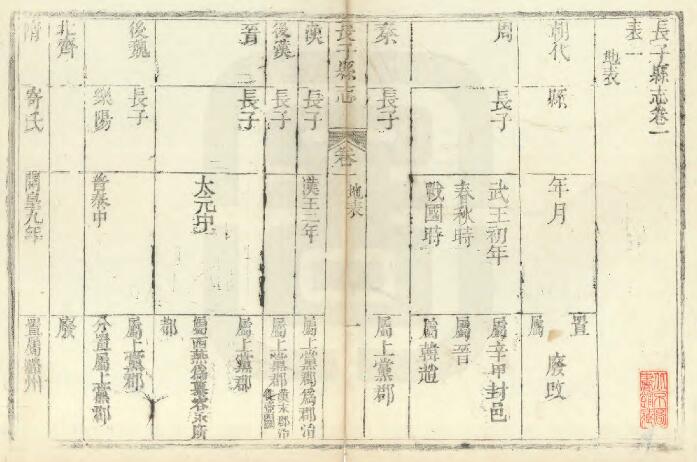 長子縣志卷一
表一
地表
朝代 縣 年月 置屬廢改
周 長子 武王初年 屬辛甲封邑
春秋時 屬晉
戰國時 屬韓趙
秦 長子 屬上黨郡
長子縣志 卷一 地表 一
漢 長子 漢王二年 屬上黨郡爲郡治
後漢 長子 屬上黨郡
晉 長子 屬上黨郡
太元中 屬西燕爲慕容永所
都
後魏 長子 屬上黨郡
樂陽 普泰中 分置屬上黨郡
北齊 廢
隋 寄氏 開皇九年 置屬潞州